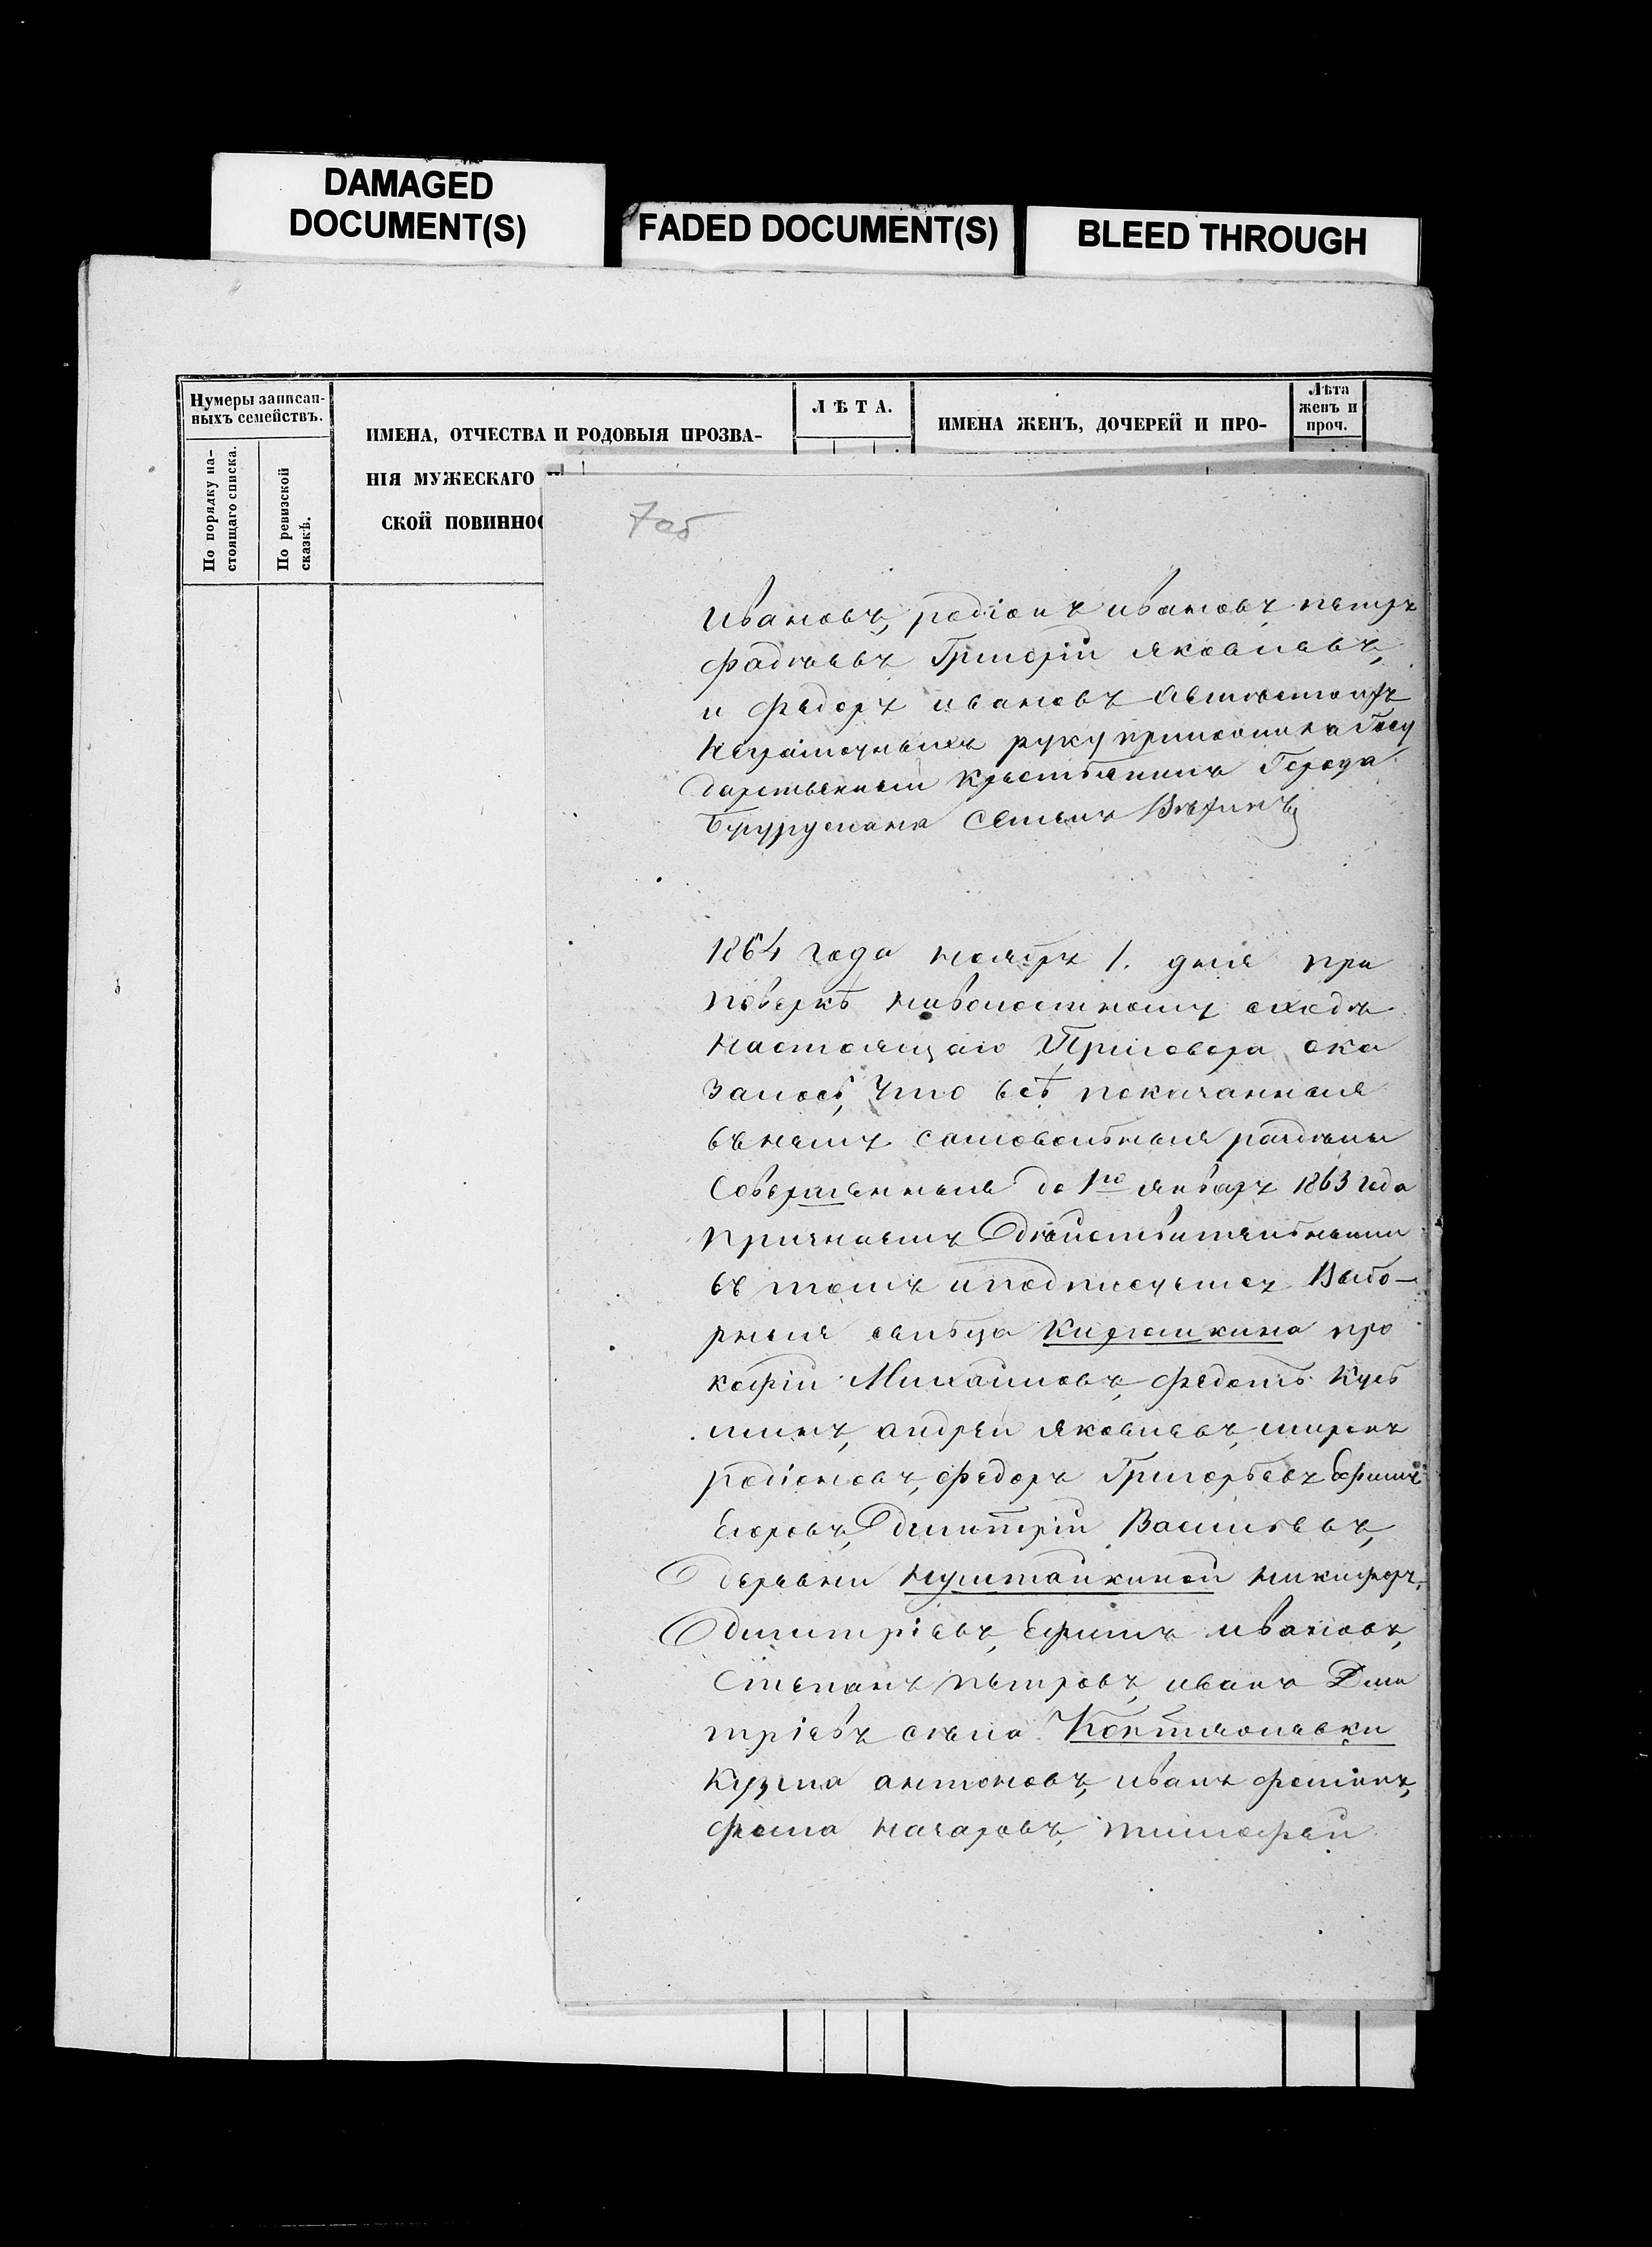 DAMAGED
DOCUMENT(S)
FADED DOCUMENT(S)
BLEED THROUGH
Нумеры записан-
ныхъ семействъ.
По порядку на-
стоящаго списка.
По ревизской
сказкѣ.
ИМЕНА, ОТЧЕСТВА И РОДОВЫЯ ПРОЗВА-
НІЯ МУЖЕСКАГО
СКОЙ ПОВИННОС
ЛѢТА.
ИМЕНА ЖЕНЪ, ДОЧЕРЕЙ И ПРО-
Лѣта
женъ и
проч.
7об
Ивановъ, родіонъ ивановъ петръ
фадѣевъ Григорій яковлевъ,
и федоръ ивановъ
неграмотныхъ руку приложилъ Госу
дарственный крестьянинъ Города
Бугуруслана Семенъ
1864 года ноябрь 1. дня при
повѣркѣ наволостномъ сходѣ
настоящаго Приговора ока
залось, что всѣ показанныя
вънемъ самовольныя раздѣлы
Совершенныя до 1го январь 1863 года
признаемъ Дѣйствительными
въ томъ иподписуемся Выбо-
рныя сельца Кирюшкина про
кофій Михайловъ, федотъ Кузь
минъ, андрей яковлевъ, миронъ
родіоновъ, федоръ Григорьевъ Ефимъ
Егоровъ, Дмитрій Васильевъ,
Деревни Нуштайкиной никифоръ
Дмитріевъ, Ефимъ ивановъ,
Степанъ петровъ, иванъ Дми
тріевъ села Коптяжевки
Кузма антоновъ, иванъ фоминъ,
фома назаровъ, тимофей